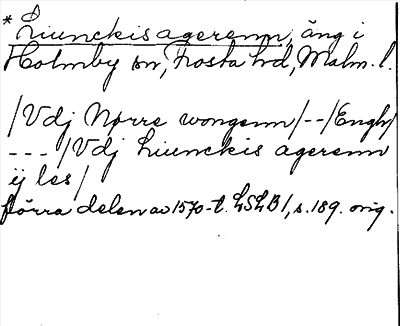 * Liunckis agerenn, äng i
Holmby sn, Frosta hd, Malm. l.
/Vdj Nørre wongenn/--/Engh/
--- /Vdj Liunckis agerenn
ij les/
förra delen av 1570-t. LSLB 1, s. 189. orig.